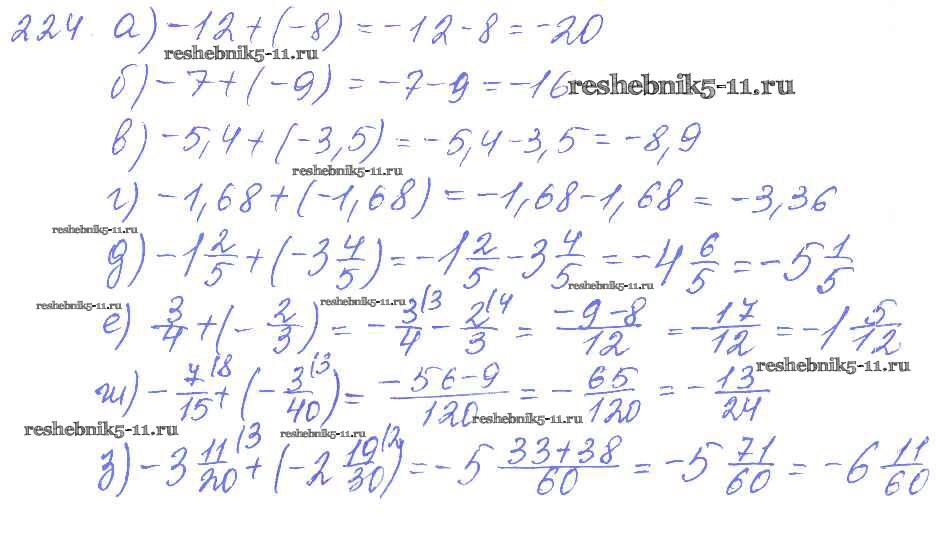 224. а) -12 + (-8) = -12 - 8 = -20
reshebnik5-11.ru
б) -7 + (-9) = -7 - 9 = -16 reshebnik5-11.ru
в) -5,4 + (-3,5) = -5,4 - 3,5 = -8,9
reshebnik5-11.ru
г) -1,68 + (-1,68) = -1,68 - 1,68 = -3,36
reshebnik5-11.ru
д) -1 2/5 + (-3 4/5) = -1 2/5 - 3 4/5 = -4 6/5 = -5 1/5
reshebnik5-11.ru
reshebnik5-11.ru reshebnik5-11.ru
е) -3/4 + (-2/3) = -3/4 (3 - 2/3 (4 = -9-8/12 = -17/12 = -1 5/12
reshebnik5-11.ru
ж) -7/15 (8 + (-3/40 (3) = -56-9/120 = -65/120 = -13/24
reshebnik5-11.ru
reshebnik5-11.ru reshebnik5-11.ru
з) -3 11/20 (3 + (-2 19/30 (2) = -5 33+38/60 = -5 71/60 = -6 11/60